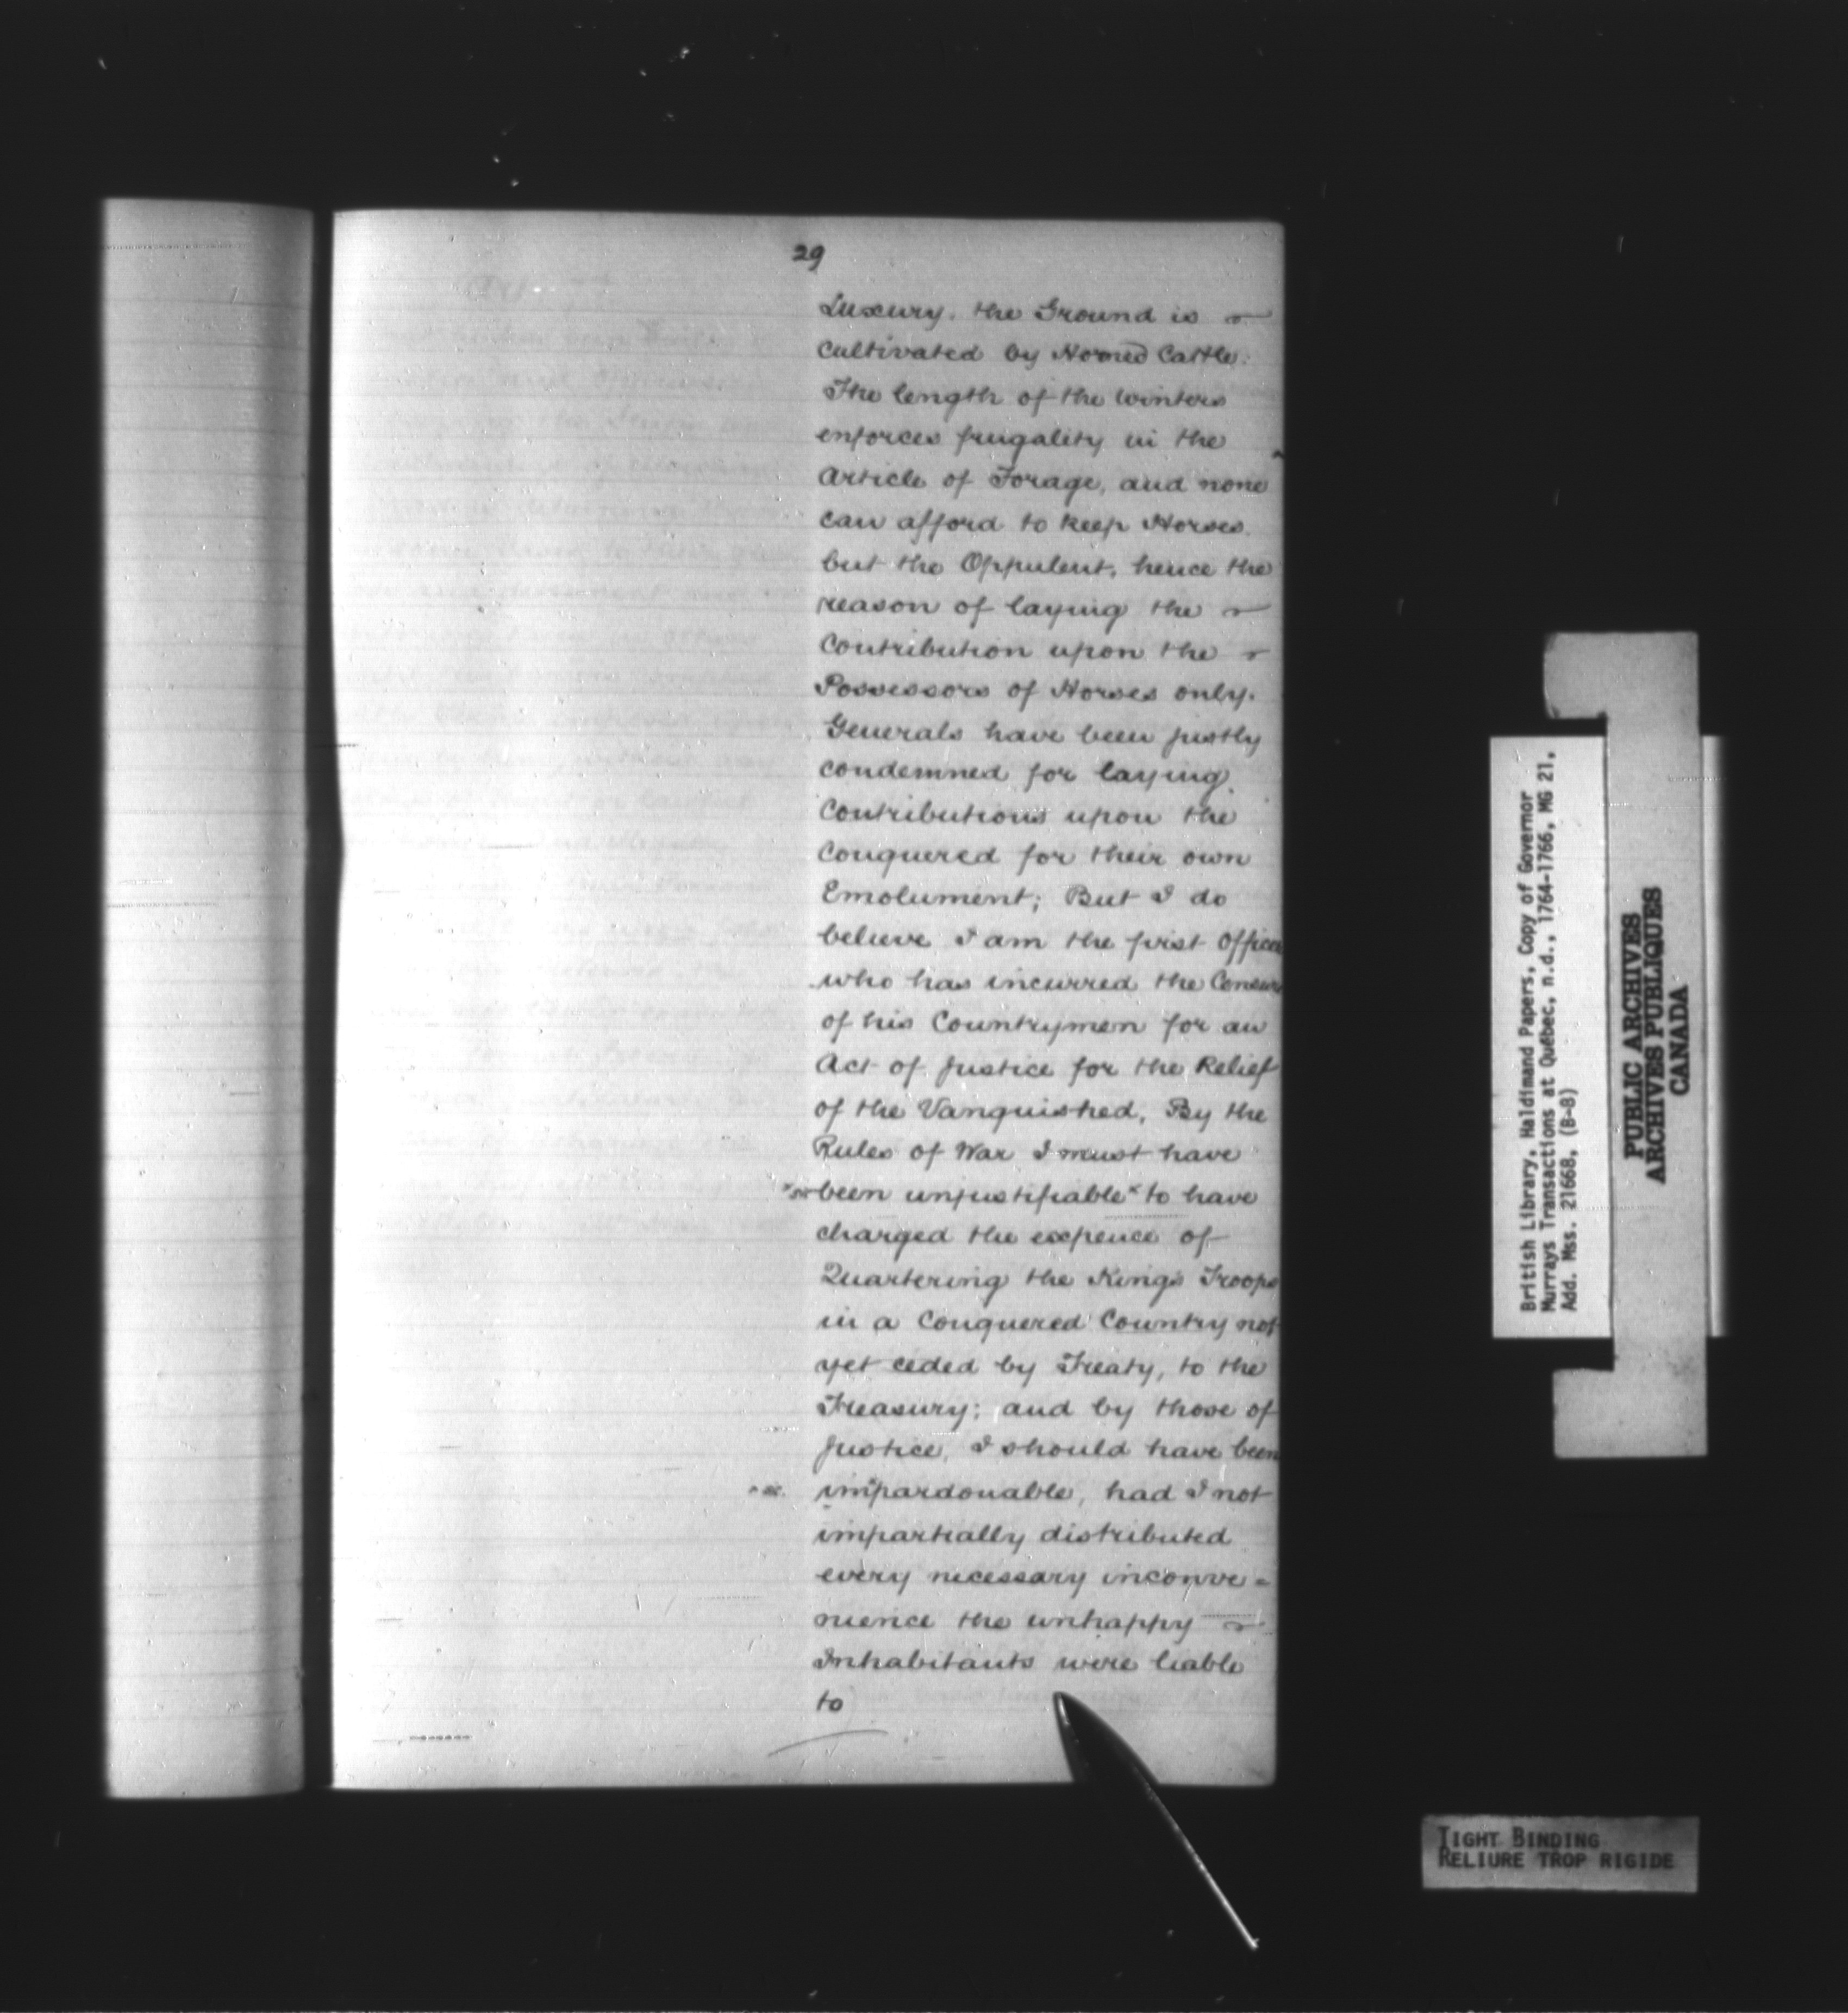 29
Luxury. the Ground is
cultivated by Horned Cattle.
The length of the Winters
enforces frugality in the
Article of Forage, and none
can afford to keep Horses.
but the Oppulent, hence the
reason of laying the
Contribution upon the
Possessors of Horses only.
Generals have been justly
condemned for laying
Contributions upon the
Conquered for their own
Emolument; But I do
believe I am the first Officer
who has incurred the Censure
of his Countrymen for an
Act of Justice for the Relief
of the Vanquished, By the
Rules of War I must have
been unjustifiable x to have
charged the expence of
Quartering the King's Troops
in a Conquered Country not
yet ceded by Treaty, to the
Treasury; and by those of
Justice, I should have been
impardonable, had I not
impartially distributed
every necessary inconve=
nience the unhappy
Inhabitants were liable
to
British Library, Haldimand Papers, Copy of Governor
Murrays Transactions at Québec, n.d., 1764-1766, MG 21,
Add. Mss. 21668, (B-8)
PUBLIC ARCHIVES
ARCHIVES PUBLIQUES
CANADA
TIGHT BINDING
RELIURE TROP RIGIDE